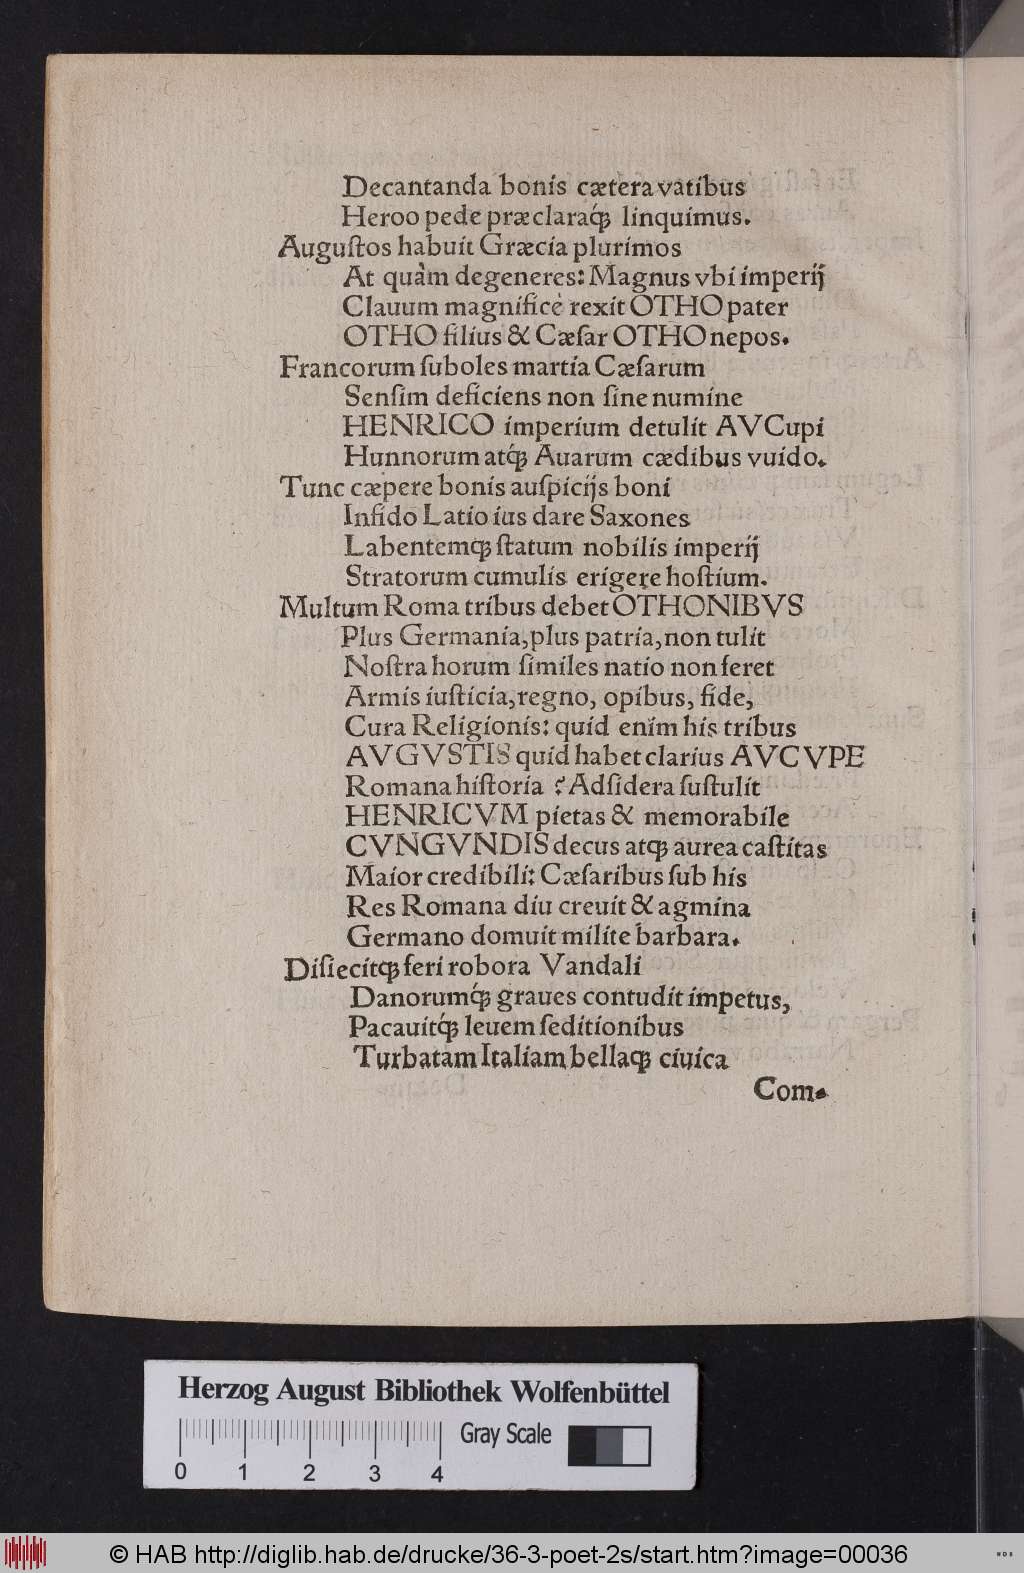 Decantanda bonis cætera vatibus
Heroo pede præclaraq́; linquimus.
Auguſtos habuit Græcia plurimos
At quàm degeneres: Magnus vbi imperij
Clauum magnificè rexit OTHO pater
OTHO filius & Cæſar OTHO nepos.
Francorum ſuboles martia Cæſarum
Senſim deficiens non ſine numine
HENRICO imperium detulit AVCupi
Hunnorum atq́; Auarum cædibus vuido.
Tunc cæpere bonis auſpicijs boni
Infido Latio ius dare Saxones
Labentemq; ſtatum nobilis imperij
Stratorum cumulis erigere hoſtium.
Multum Roma tribus debet OTHONIBVS
Plus Germania, plus patria, non tulit
Noſtra horum ſimiles natio non feret
Armis iuſticia, regno, opibus, fide,
Cura Religionis: quid enim his tribus
AVGVSTIS quid habet clarius AVCVPE
Romana hiſtoria ? Ad ſidera ſuſtulit
HENRICVM pietas & memorabile
CVNGVNDIS decus atq; aurea caſtitas
Maior credibili: Cæſaribus ſub his
Res Romana diu creuit & agmina
Germano domuit milite barbara.
Diſiecitq; feri robora Vandali
Danorumq́; graues contudit impetus,
Pacauitq́; leuem ſeditionibus
Turbatam Italiam bellaq; ciuica
Com-
Herzog August Bibliothek Wolfenbüttel
Gray Scale
0 1 2 3 4
© HAB http://diglib.hab.de/drucke/36-3-poet-2s/start.htm?image=00036